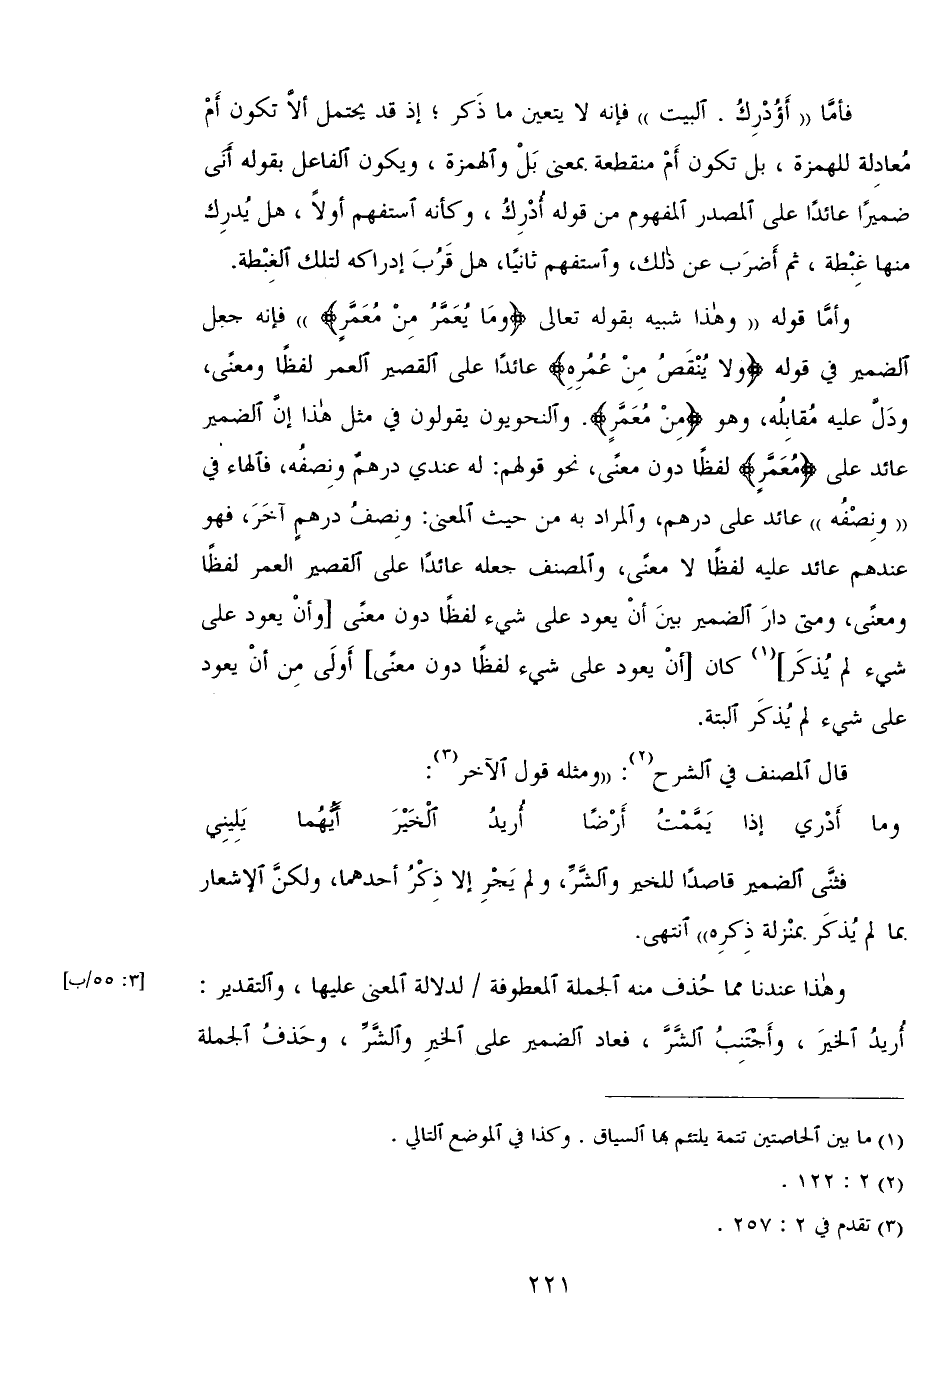 فأمَّا «أَوُدْرِكُ . ٱلبيت» فإنه لا يتعين ما ذَكر ؛ إذ قد يحتمل ألاَّ تكون أَمْ
مُعادلة للهمزة ، بل تكون أَمْ منقطعة بمعنى بَلْ وٱلهمزة ، ويكون ٱلفاعل بقوله أَنَى
ضميرًا عائدًا على ٱلمصدر ٱلمفهوم من قوله أُدْرِكُ ، وكأنه ٱستفهم أولاً ، هل يُدرِك
منها غِبْطة ، ثم أَضرَب عن ذٰلك، وٱستفهم ثانيًا، هل قَرُبَ إدراكه لتلك ٱلغِبْطة.
وأمَّا قوله «وهٰذا شبيه بقوله تعالى ﴿وَمَا يُعَمَّرُ مِنْ مُعَمَّرٍ﴾» فإنه جعل
ٱلضمير في قوله ﴿ولا يُنْقَصُ مِنْ عُمُرِهِ﴾ عائدًا على ٱلقصير ٱلعمر لفظًا ومعنًى،
ودَلَّ عليه مُقابِلُه، وهو ﴿مِنْ مُعَمَّرٍ﴾. وٱلنحويون يقولون في مثل هٰذا إنَّ ٱلضمير
عائد على ﴿مُعَمَّرٍ﴾ لفظًا دون معنًى، نحو قولهم: له عندي درهمٌ ونِصفُه، فٱلهاء في
«ونِصْفُه» عائد على درهم، وٱلمراد به من حيث ٱلمعنى: ونِصفُ درهمٍ آخَرَ، فهو
عندهم عائد عليه لفظًا لا معنًى، وٱلمصنف جعله عائدًا على ٱلقصير العمر لفظًا
ومعنًى، ومتى دارَ ٱلضمير بينَ أنْ يعود على شيء لفظًا دون معنًى [وأنْ يعود على
شيء لم يُذكَر](١) كان [أنْ يعود على شيء لفظًا دون معنًى] أَولَى مِن أنْ يعود
على شيء لم يُذكَر ٱلبتة.
قال ٱلمصنف في ٱلشرح(٢): «ومثله قول ٱلآخر(٣):
وما أَدْرِي إذا يَمَّمْتُ أَرْضًا أُريدُ ٱلْخَيْرَ أَيُّهُما يَلِيني
فثنَّى ٱلضمير قاصدًا للخير وٱلشَّرِّ، و لم يَجْرِ إلا ذِكْرُ أحدهما، ولكنَّ ٱلإشعار
بما لم يُذكَر بمنْزلة ذِكرِه» ٱنتهى.
وهٰذا عندنا مما حُذف منه ٱلجملة ٱلمعطوفة / لدلالة ٱلمعنى عليها ، وٱلتقدير : [٣: ٥٥/ب]
أُريدُ ٱلخيرَ ، وأَجْتَنِبُ ٱلشَّرَّ ، فعاد ٱلضمير على ٱلخيرِ وٱلشَّرِّ ، وحَذفُ ٱلجملة
(١) ما بين ٱلحاصتين تتمة يلتئم بها ٱلسياق . وكذا في ٱلموضع ٱلتالي .
(٢) ٢ : ١٢٢ .
(٣) تقدم في ٢ : ٢٥٧ .
٢٢١